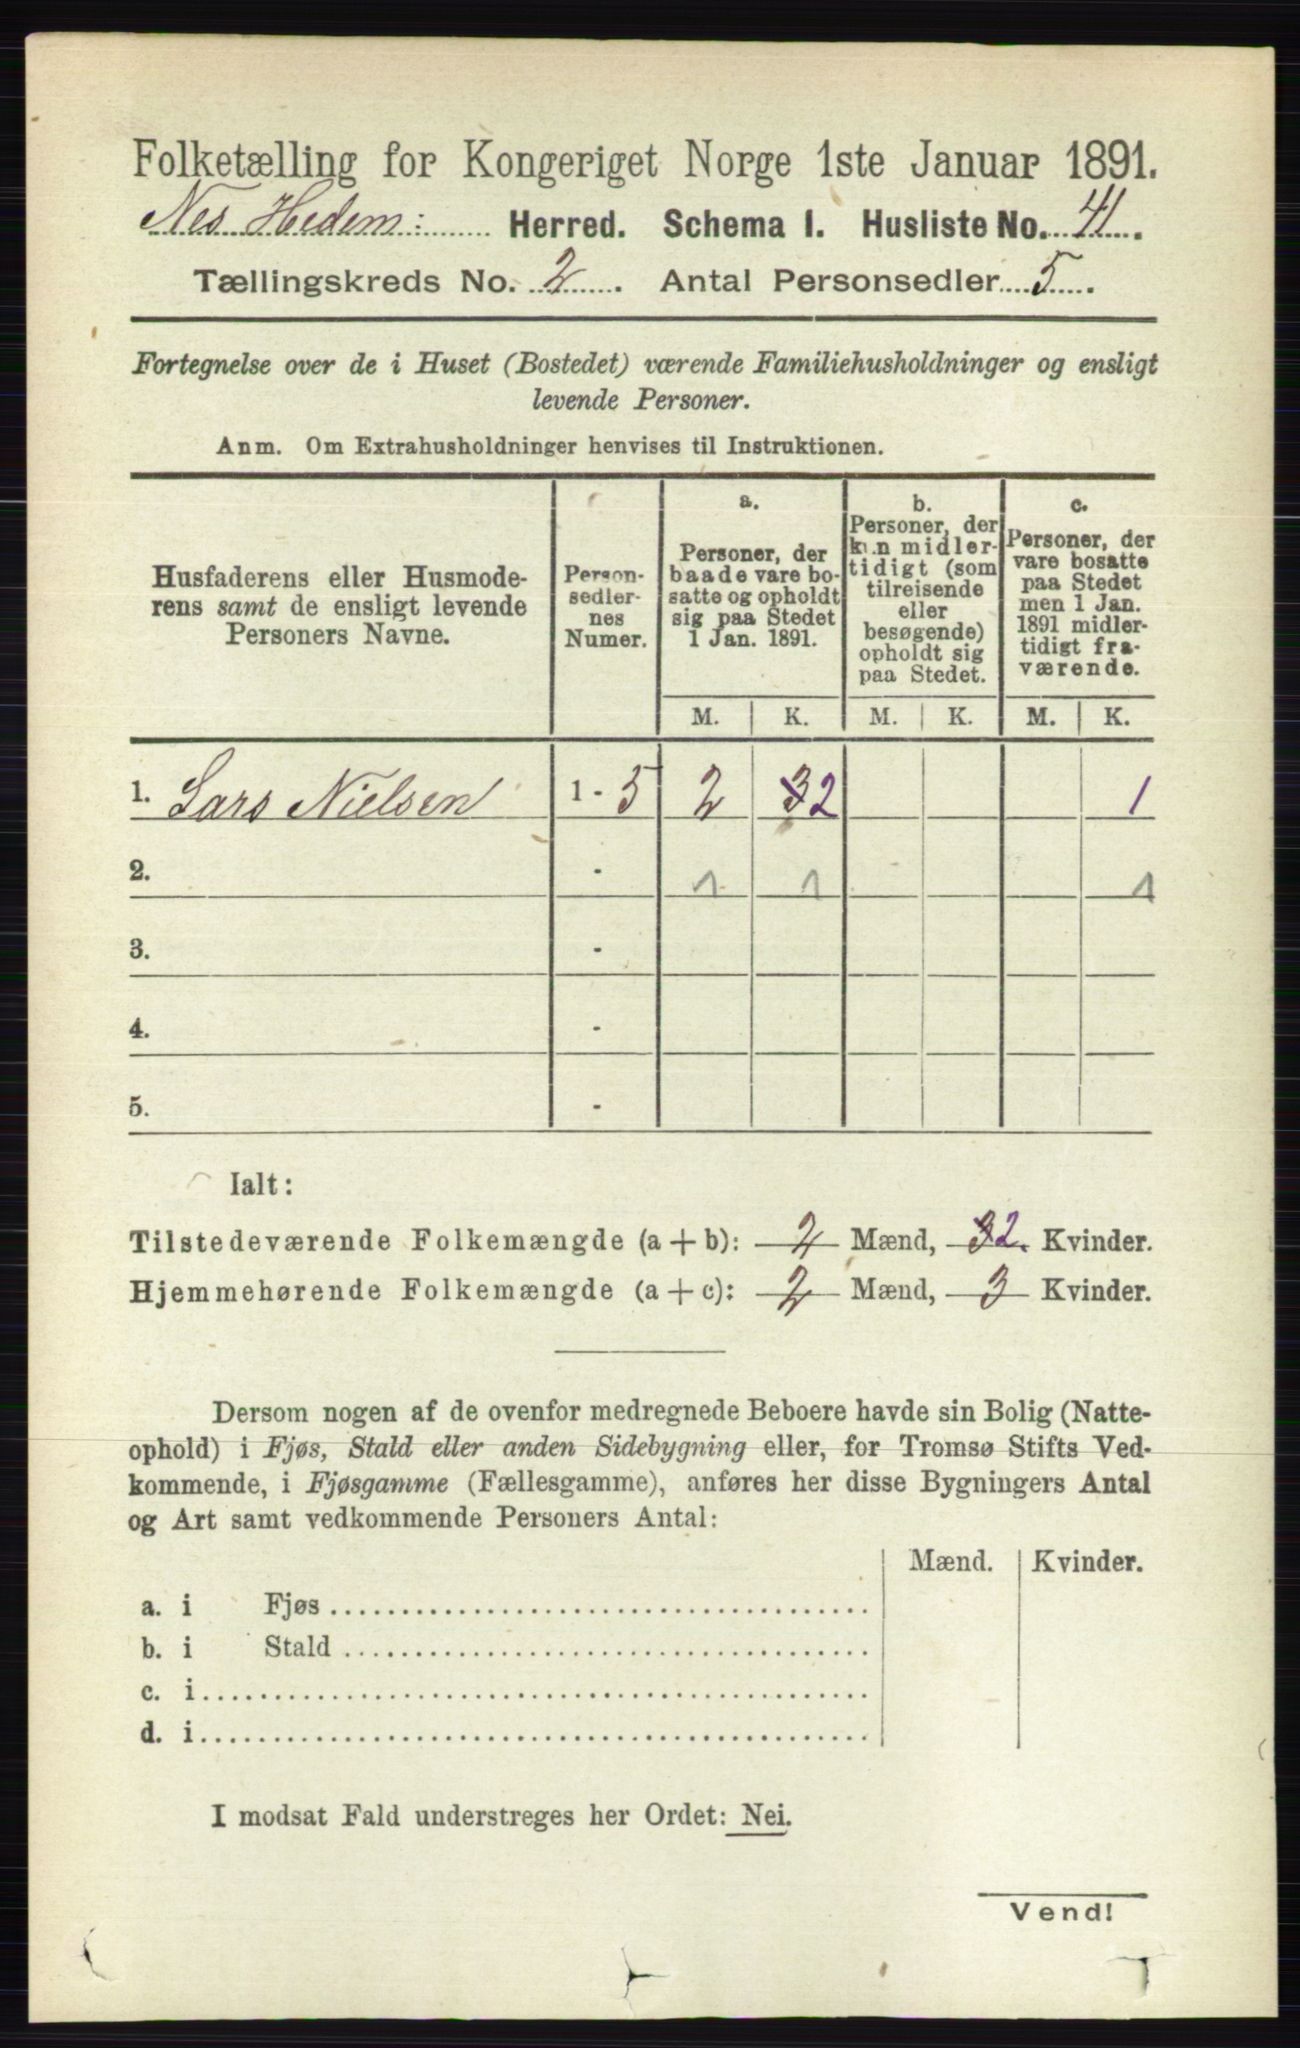 Folketælling for Kongeriget Norge 1ste Januar 1891.
Nes Hedem: Herred. Schema I. Husliste No. 41.
Tællingskreds No. 2. Antal Personsedler 5.
Fortegnelse over de i Huset (Bostedet) værende Familiehusholdninger og ensligt
levende Personer.
Anm. Om Extrahusholdninger henvises til Instruktionen.
Husfaderens eller Husmode-
rens samt de ensligt levende
Personers Navne.
Person-
sedler-
nes
Numer.
a.
Personer, der
baade vare bo-
satte og opholdt
sig paa Stedet
1 Jan. 1891.
b.
Personer, der
kun midler-
tidigt (som
tilreisende
eller
besøgende)
opholdt sig
paa Stedet.
c.
Personer, der
vare bosatte
paa Stedet
men 1 Jan.
1891 midler-
tidigt fra-
værende.
M. K. M. K. M. K.
1. Lars Nielsen 1 - 5 2 32 1
2. - 1 1 1
3. -
4. -
5. -
Ialt:
Tilstedeværende Folkemængde (a + b): 2 Mænd, 32. Kvinder.
Hjemmehørende Folkemængde (a + c): 2 Mænd, 3 Kvinder.
Dersom nogen af de ovenfor medregnede Beboere havde sin Bolig (Natte-
ophold) i Fjøs, Stald eller anden Sidebygning eller, for Tromsø Stifts Ved-
kommende, i Fjøsgamme (Fællesgamme), anføres her disse Bygningers Antal
og Art samt vedkommende Personers Antal:
Mænd. Kvinder.
a. i Fjøs
b. i Stald
c. i
d. i
I modsat Fald understreges her Ordet: Nei.
Vend!